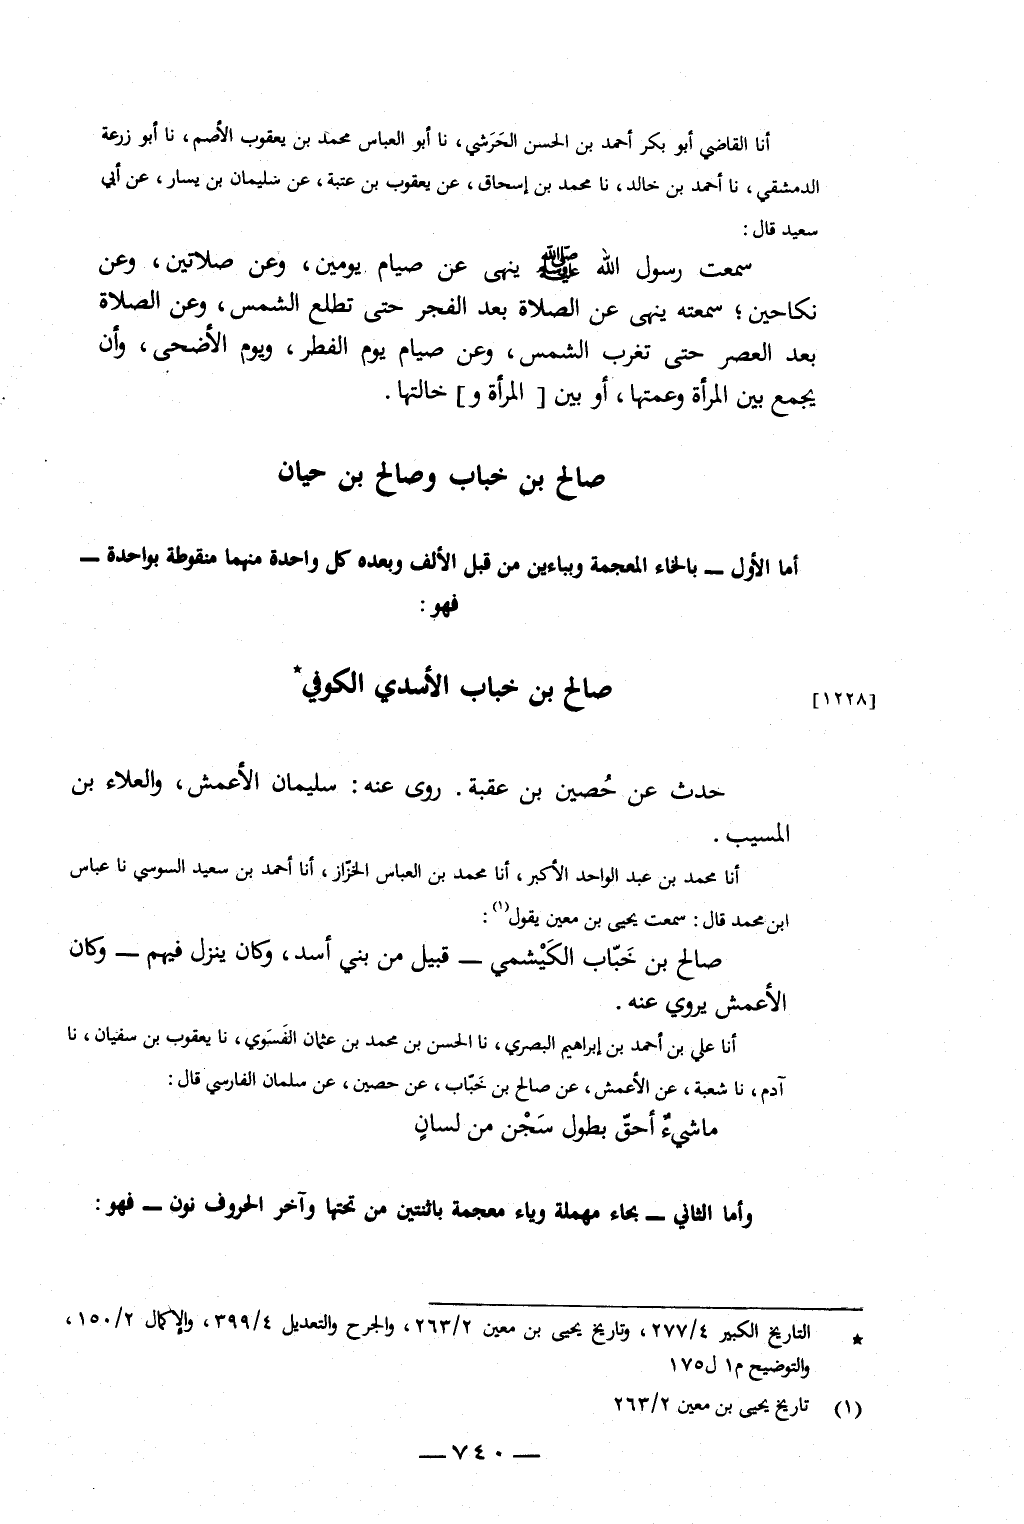 أنا القاضي أبو بكر أحمد بن الحسن الحَرَشي، نا أبو العباس محمد بن يعقوب الأصم، نا أبو زرعة
الدمشقي، نا أحمد بن خالد، نا محمد بن إسحاق، عن يعقوب بن عتبة، عن سليمان بن يسار، عن أبي
سعيد قال:
سمعت رسول الله ﷺ ينهى عن صيام يومين، وعن صلاتين، وعن
نكاحين؛ سمعته ينهى عن الصلاة بعد الفجر حتى تطلع الشمس، وعن الصلاة
بعد العصر حتى تغرب الشمس، وعن صيام يوم الفطر، ويوم الأضحى، وأن
يجمع بين المرأة وعمتها، أو بين [ المرأة و] خالتها.
صالح بن خباب وصالح بن حيان
أما الأول — بالخاء المعجمة وبباءين من قبل الألف وبعده كل واحدة منهما منقوطة بواحدة —
فهو:
[١٢٢٨] صالح بن خباب الأسدي الكوفي*
حدث عن حُصين بن عقبة. روى عنه: سليمان الأعمش، والعلاء بن
المسيب.
أنا محمد بن عبد الواحد الأكبر، أنا محمد بن العباس الخزّاز، أنا أحمد بن سعيد السوسي نا عباس
ابن محمد قال: سمعت يحيى بن معين يقول(١):
صالح بن خَبّاب الكَيْشمي — قبيل من بني أسد، وكان ينزل فيهم — وكان
الأعمش يروي عنه.
أنا علي بن أحمد بن إبراهيم البصري، نا الحسن بن محمد بن عثمان الفَسَوي، نا يعقوب بن سفيان، نا
آدم، نا شعبة، عن الأعمش، عن صالح بن خَبّاب، عن حصين، عن سلمان الفارسي قال:
ماشيءٌ أحقّ بطول سَجْن من لسانٍ
وأما الثاني — بحاء مهملة وياء معجمة باثنتين من تحتها وآخر الحروف نون — فهو:
* التاريخ الكبير ٢٧٧/٤، وتاريخ يحيى بن معين ٢٦٣/٢، والجرح والتعديل ٣٩٩/٤، والإكمال ١٥٠/٢،
والتوضيح م١ ل١٧٥
(١) تاريخ يحيى بن معين ٢٦٣/٢
— ٧٤٠ —